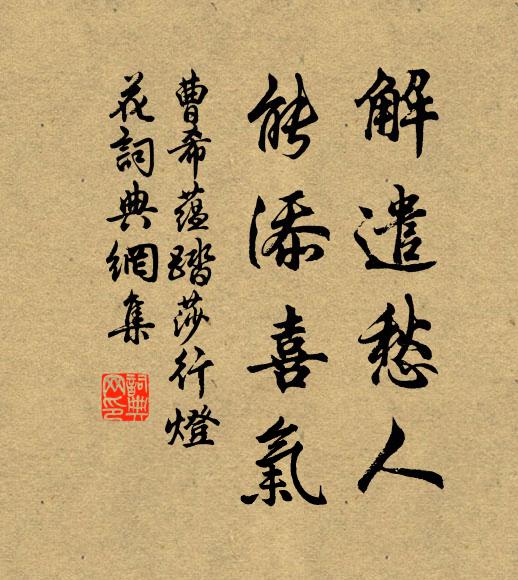 解遣愁人
能添喜氣
曹希蘊踏莎行燈
花詞典網集
詞典網印